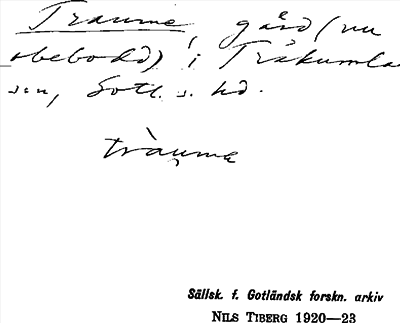 Traume, gård (nu
obebodd) i Träkumla
sn, Gotl. s. hd.
tràu̯mɐ
Sällsk. f. Gotländsk forskn. arkiv
NILS TIBERG 1920—23